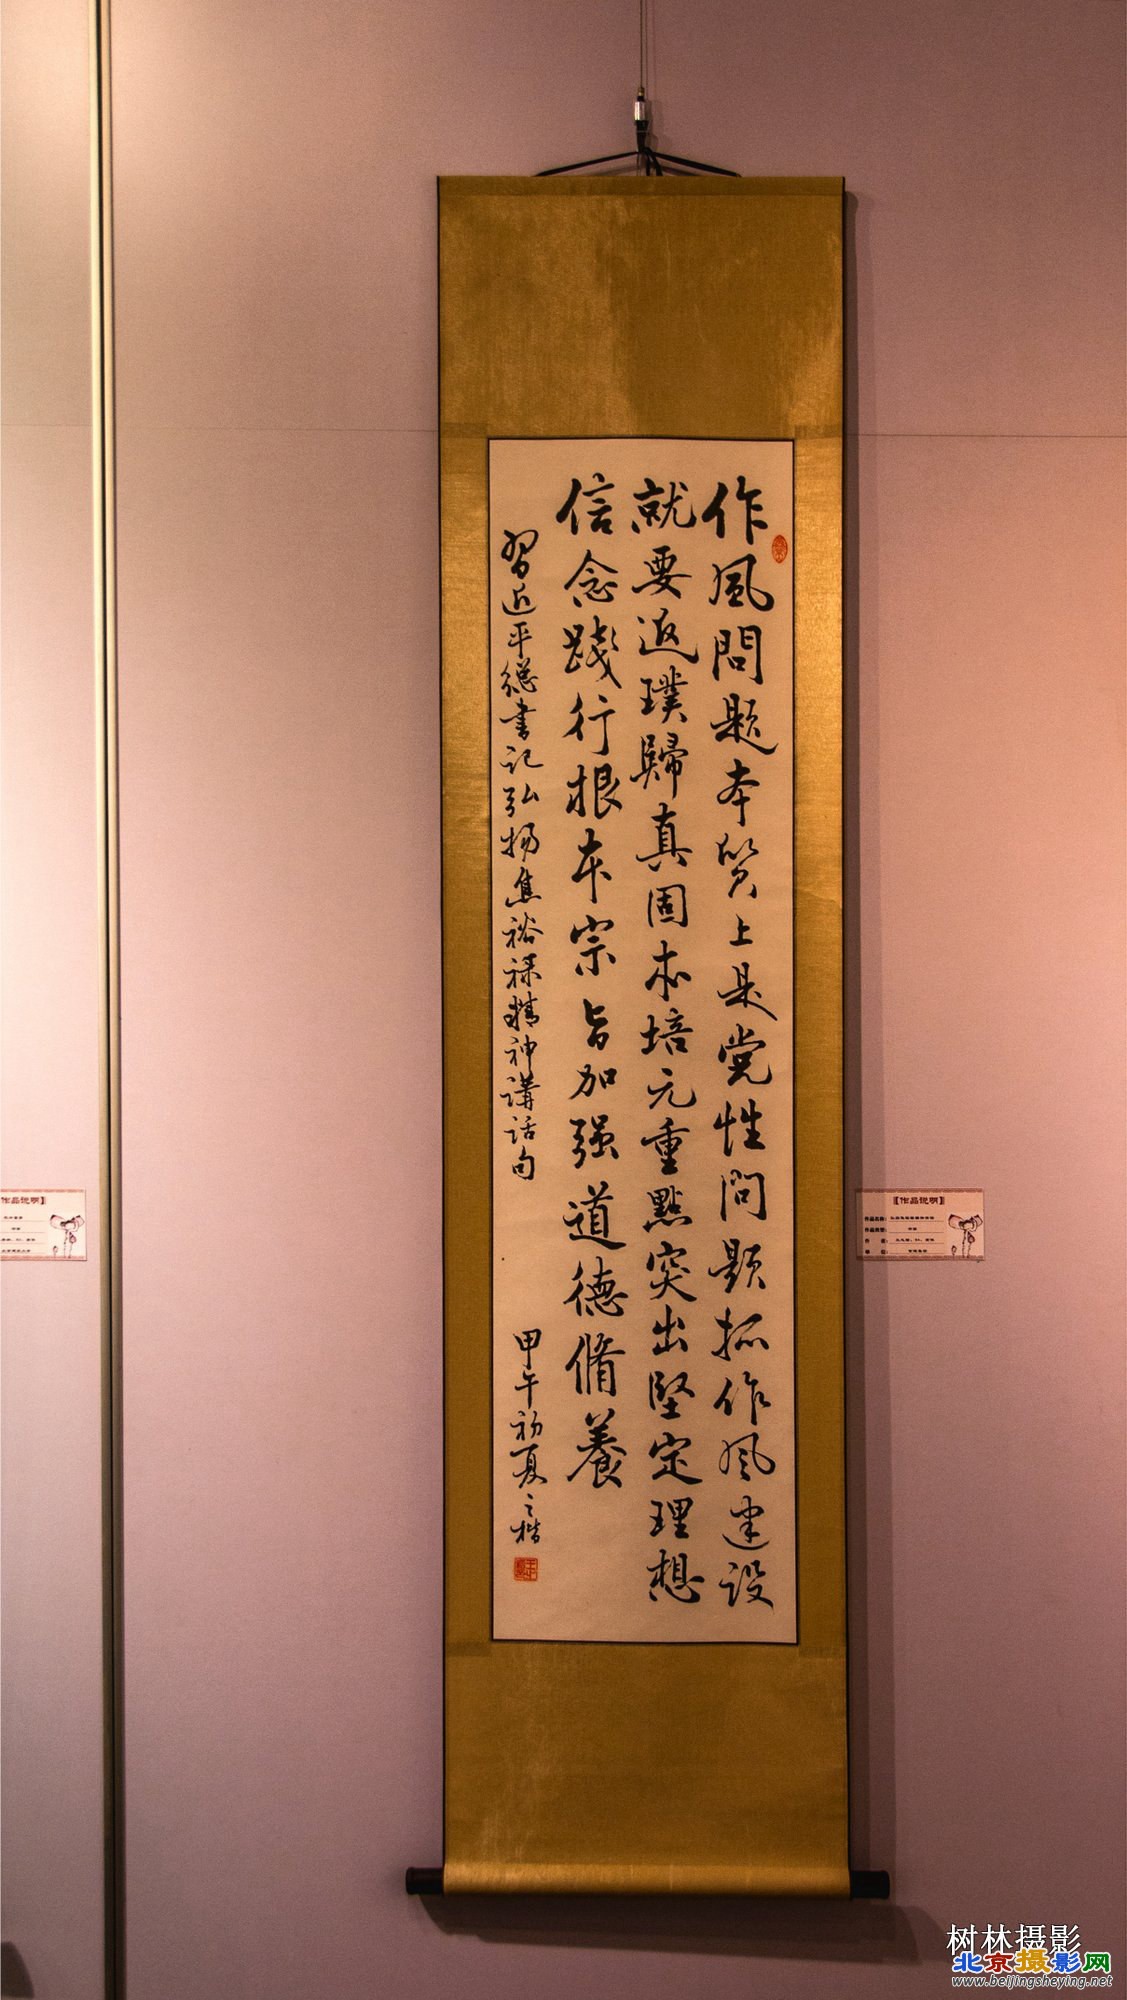 作風問題本质上是党性問題抓作风建设
就要返璞歸真固本培元重點突出堅定理想
信念踐行根本宗旨加强道德脩養
習近平總書记弘揚焦裕禄精神講话句
甲午初夏之楷
【作品说明】
作品说明】
树林摄影
北京摄影网
www.beijingsheying.net